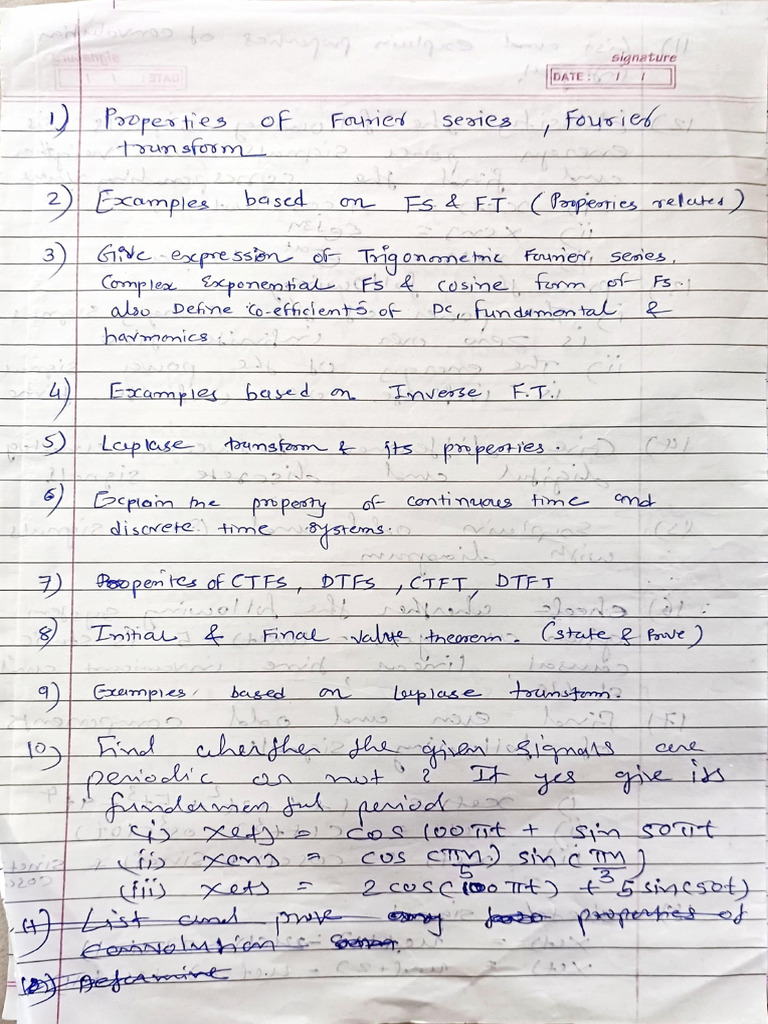 signature
DATE: / /
1) Properties of Fourier series, Fourier
transform
2) Examples. based on FS & FT (Properties related)
3) Give expression of Trigonometric Fourier series,
Complex Exponential FS & cosine form of FS.
also Define co-efficients of DC, fundamental &
harmonics.
4) Examples based on Inverse F.T.
5) Laplase transform & its properties.
6) Explain the property of continuous time and
discrete time systems.
7) Properites of CTFS, DTFS, CTFT, DTFT
8) Initial & Final value theorem. (state & Prove)
9) Examples. based on laplase transform.
10) Find wheither the given signals are
periodic or not? If yes give its
fundamental period
(i) x(t) = cos 100πt + sin 50πt
(ii) x(n) = cos (πn/5) sin (πn/3)
(iii) x(t) = 2cos(100πt) + 5sin(50t)
List and prove properties of
convolution